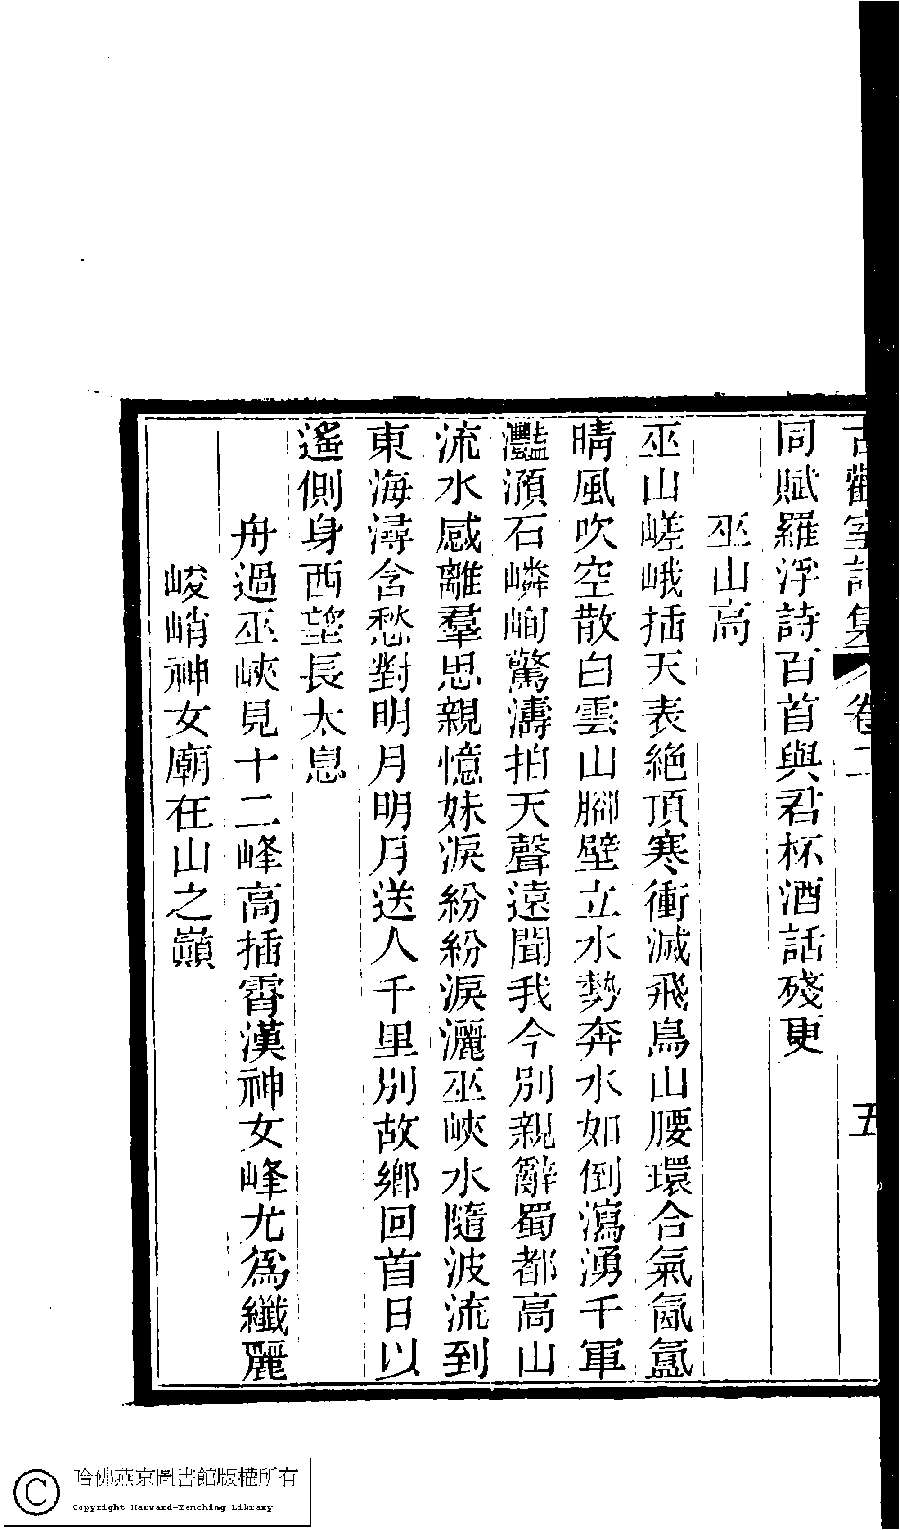 古歡室詩集 卷二 五
同賦羅浮詩百首與君杯酒話殘更
巫山高
巫山嵯峨插天表絶頂寒衝滅飛鳥山腰環合氣氤氳
晴風吹空散白雲山腳壁立水勢奔水如倒瀉湧千軍
灩澦石嶙峋驚濤拍天聲遠聞我今別親辭蜀都高山
流水感離羣思親憶妹淚紛紛淚灑巫峽水隨波流到
東海潯含愁對明月明月送人千里別故鄉回首日以
遙側身西望長太息
舟過巫峽見十二峰高插霄漢神女峰尤爲纖麗
峻峭神女廟在山之巔
哈佛燕京圖書館版權所有
Copyright Harvard-Yenching Library